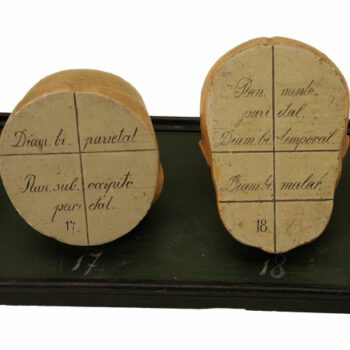 Diam. bi- parietal
Plan. sub. occipito
parietal.
17.
Plan. mento
parietal.
Diam. bi temporal.
Diam. bi malar.
18.
17
18